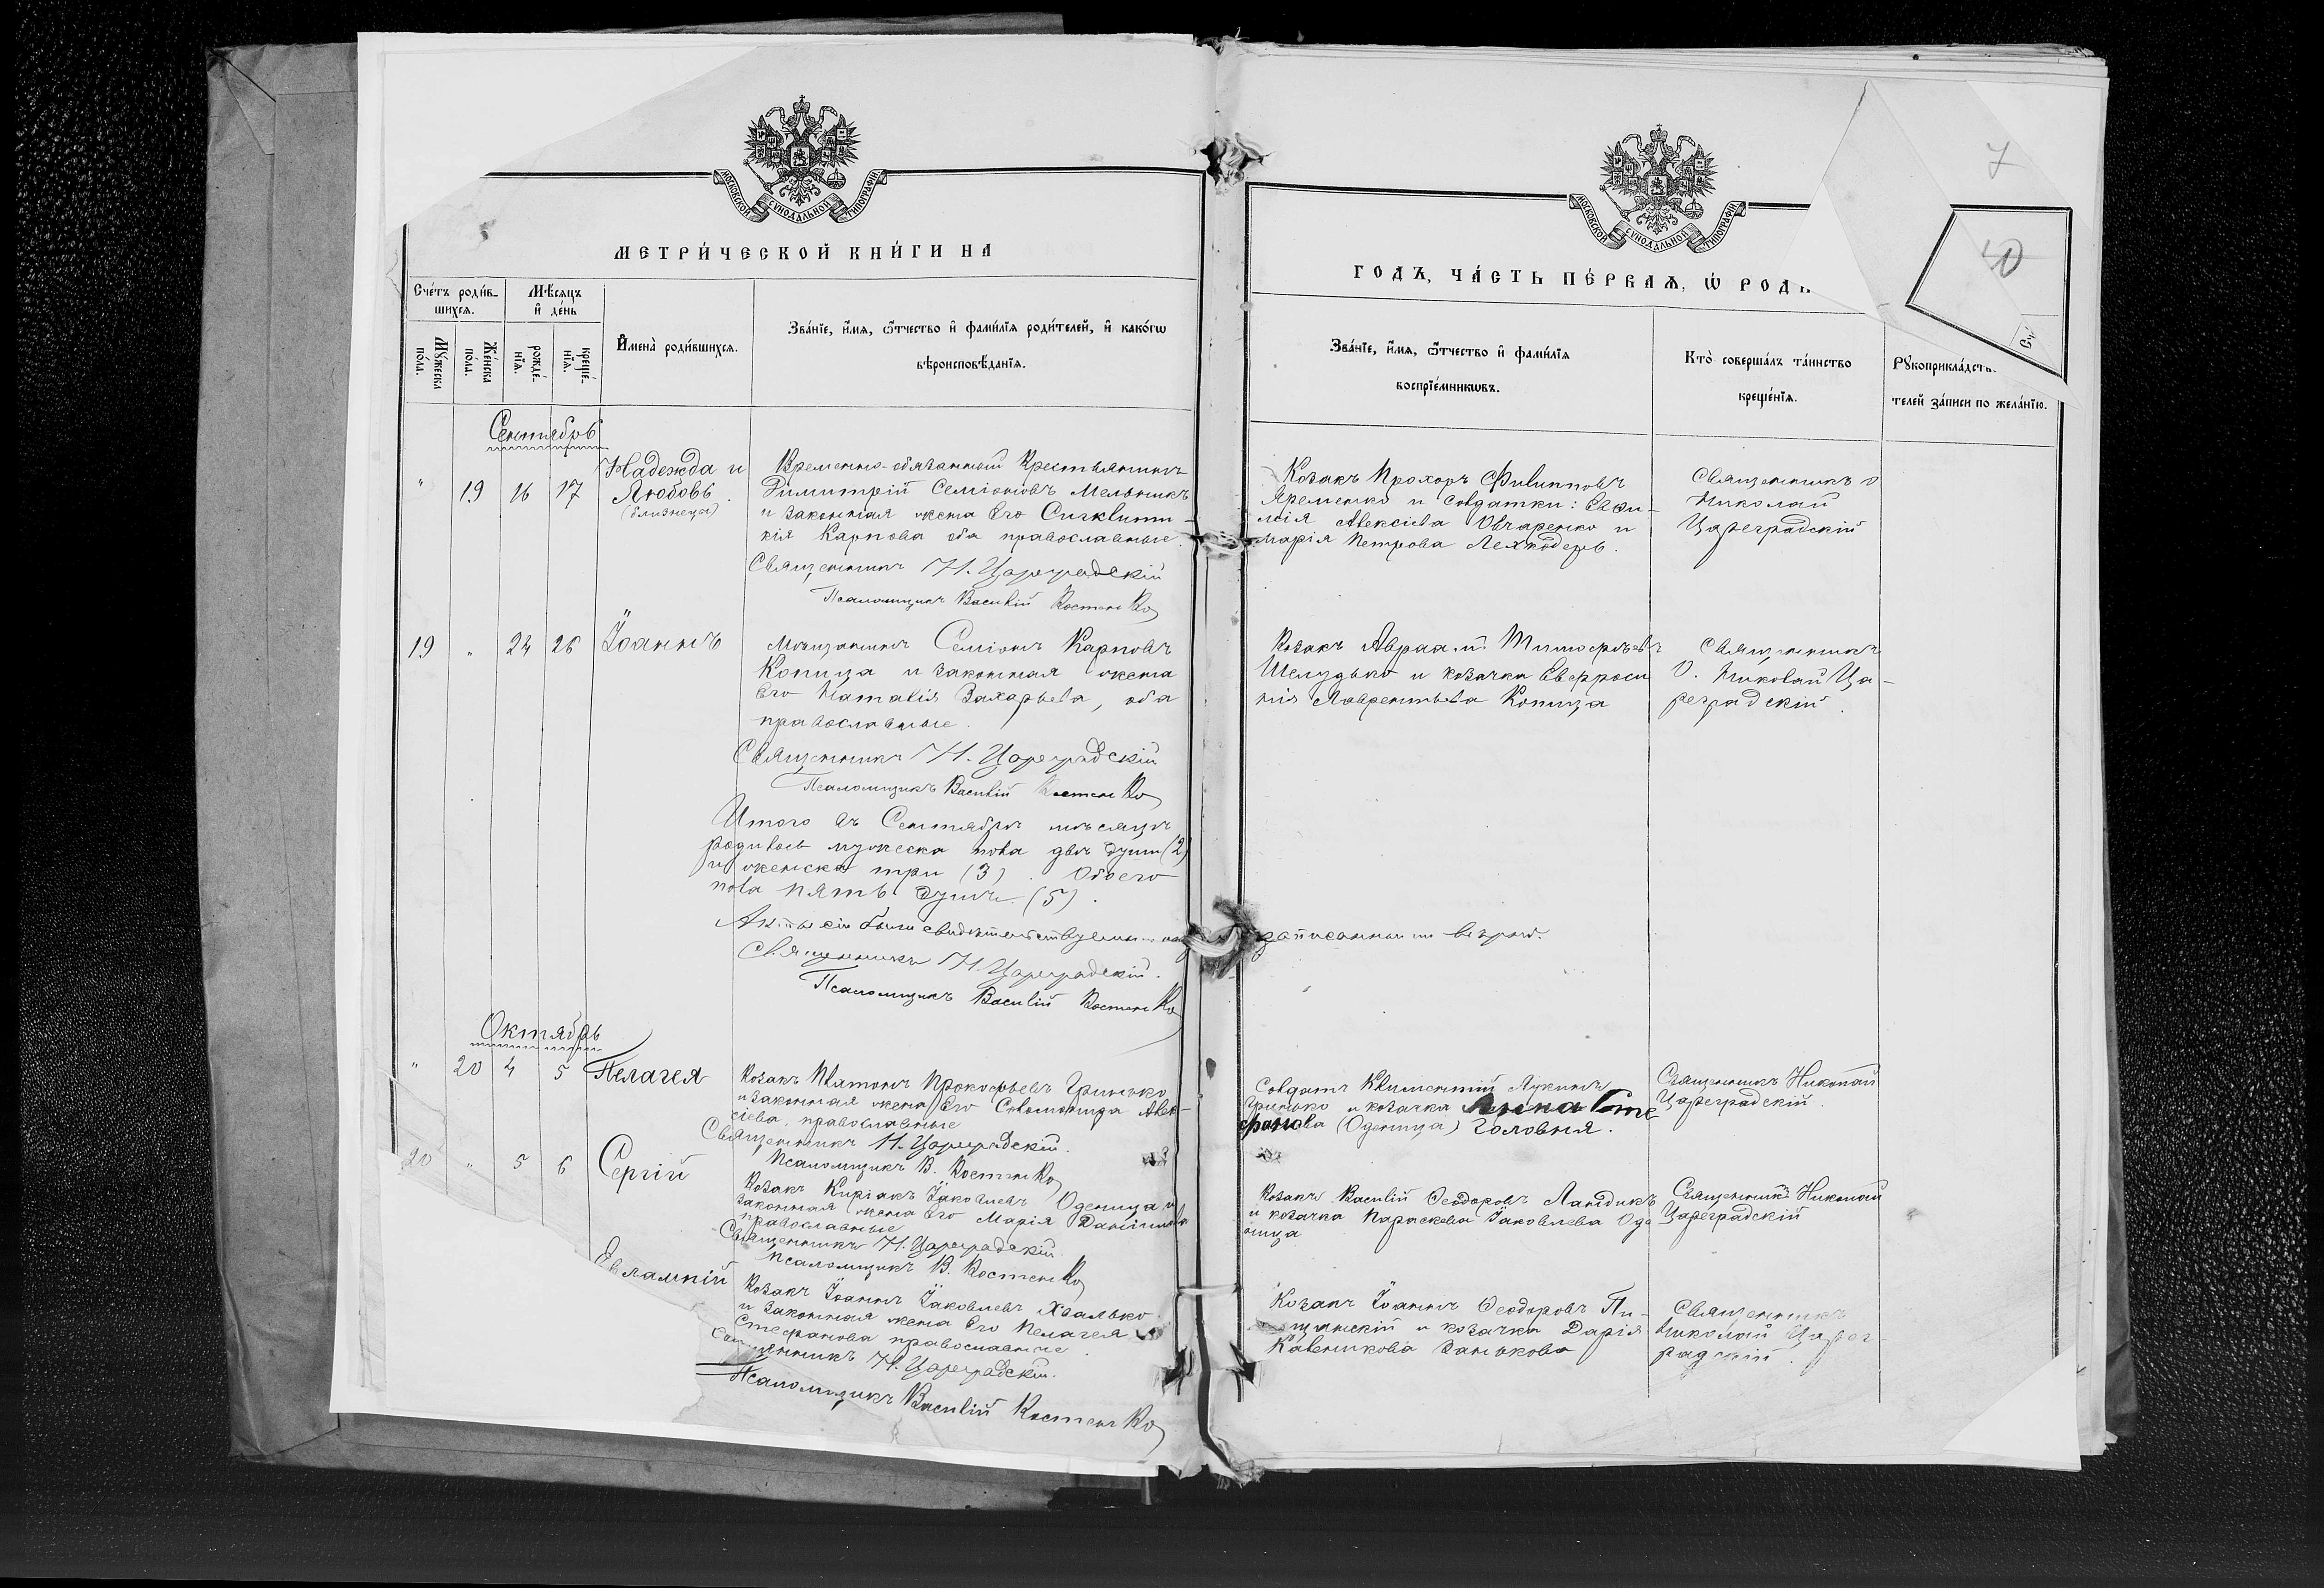 МОСКОВСКОЙ СѴНОДАЛЬНОЙ ТИПОГРАФІИ
МЕТРИ́ЧЕСКОЙ КНИ́ГИ НА
Сче́тъ роди́в-
шихся.
Мѣ́сяцъ
и҆ де́нь
Мꙋ́жеска
по́ла.
Же́нска
по́ла.
рожде́-
нїя.
креще́-
нїя.
И҆мена̀ роди́вшихся.
Зва́нїе, и҆́мя, ѻ҆́тчество и҆ фами́лїя роди́телей, и҆ како́гѡ
вѣроисповѣ́данїя.
Сентябрь
" 19 16 17
Надежда и
Любовь.
(близнецы)
Временно-обязанный крестьянинъ
Димитрій Семіоновъ Мельникъ
и законная жена его
Карпова оба православные.
Священникъ Н. Цареградскій
Псаломщикъ Василій Костенко
19 " 24 26 Іоаннъ
Мѣщанинъ Семіонъ Карповъ
Копица и законная жена
его Наталія Захарьева, оба
православные.
Священникъ Н. Цареградскій
Псаломщикъ Василій Костенко
Итого въ Сентябрѣ мѣсяцѣ
родилось мужеска пола двѣ души (2)
и женска три (3). Обоего
пола пять душъ (5).
Акты сіи были свидѣтельствуемы и
Священникъ Н. Цареградскій.
Псаломщикъ Василій Костенко
Октябрь
" 20 4 5 Пелагея
Козакъ Платонъ Прокофьевъ Гринько
и законная жена его Соломонида Алек-
сіева, православные
Священникъ Н. Цареградскій.
Псаломщикъ В. Костенко
20 " 5 6 Сергій
Козакъ Киріакъ Іаковлевъ Оденица и
законная жена его Марія Даніилова
православные
Священникъ Н. Цареградскій
Псаломщикъ В. Костенко
Евлампій
Козакъ Іоаннъ Іаковлевъ Хвалько
и законная жена его Пелагея
Стефанова православные
Священникъ Н. Цареградскій.
Псаломщикъ Василій Костенко
7
МОСКОВСКОЙ СѴНОДАЛЬНОЙ ТИПОГРАФІИ
ГОДЪ, ЧА́СТЬ ПЕ́РВАЯ, Ѡ҆ РОДИ
Зва́нїе, и҆́мя, ѻ҆́тчество и҆ фами́лїя
воспрїе́мникѡвъ.
Кто̀ соверша́лъ та́инство
креще́нїя.
Рꙋкоприкла́дств
телей за́писи по жела́нїю.
Козакъ Прохоръ Филипповъ
Яременко и солдатки: Евфи-
мія Алексіева Овчаренко и
Марія Петрова Лехкодеръ.
Священникъ
Николай
Цареградскій
Козакъ Авраамій Тимофѣевъ
Шелудько и козачка Евфроси
нія Лаврентьева Копица
Священникъ
О. Николай Ца-
реградскій.
записанными вѣрны.
Солдатъ Климентій Лукинъ
Гринько и козачка Анна Сте
фанова (Оденица) Головня.
Священникъ Николай
Цареградскій.
Козакъ Василій Ѳеодоровъ Ландикъ
и козачка Параскева Іаковлева Оде
ница
Священникъ Николай
Цареградскій
Козакъ Іоаннъ Ѳеодоровъ Пи-
щанскій и козачка Дарія
Калиникова Занькова
Священникъ
Николай Царег-
радскій.